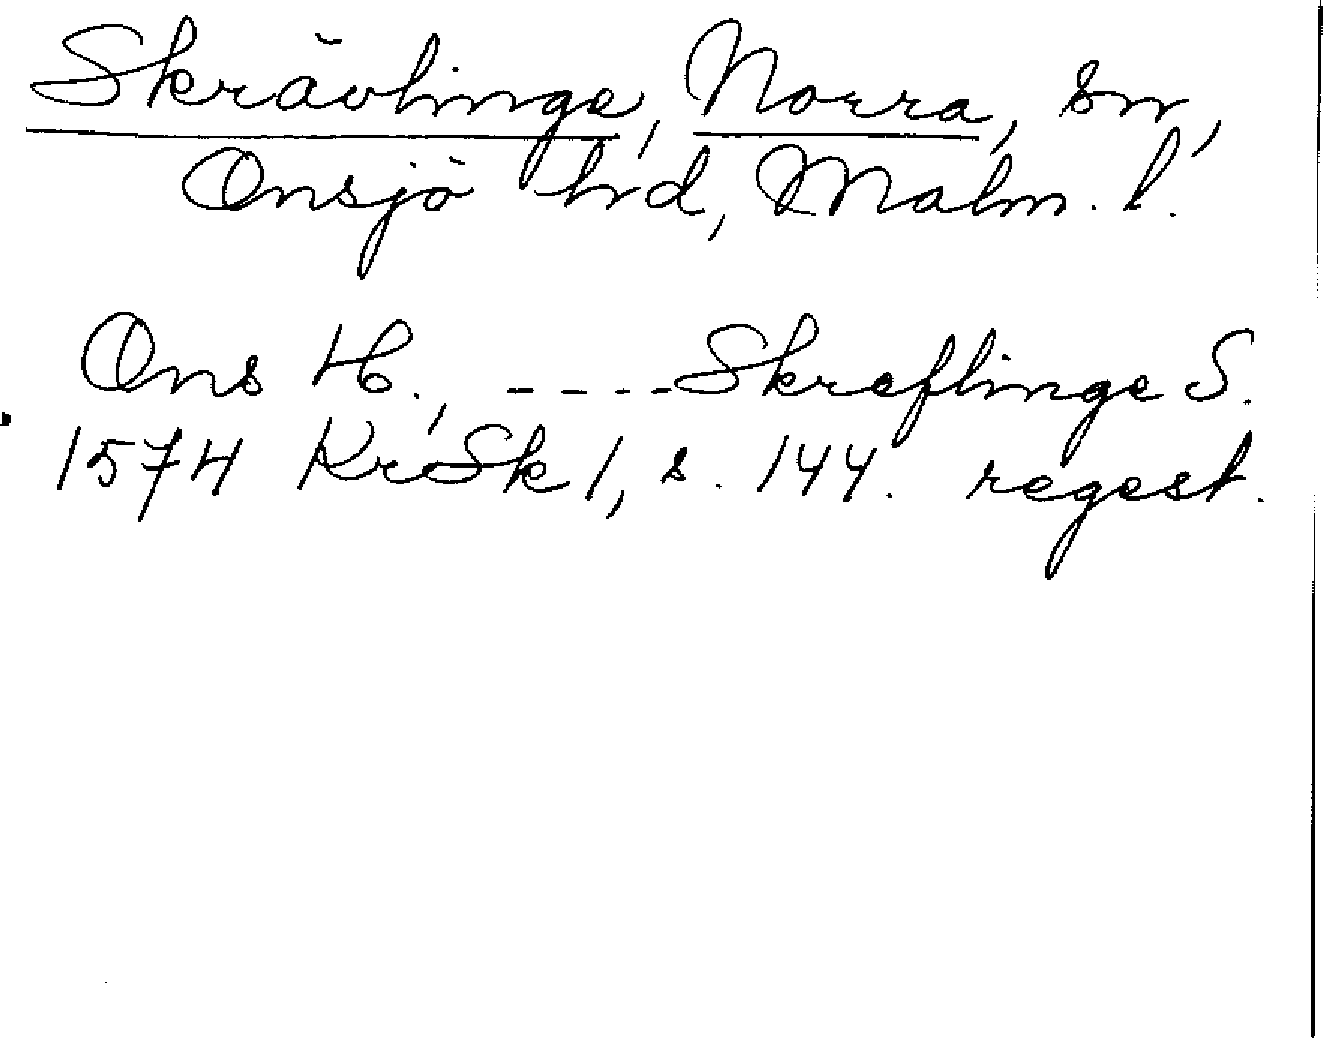 Skrävlinge, Norra, sn,
Onsjö hrd, Malm. l.
Ons H., ----Skreflinge S.
1574 KrSk 1, s. 144. regest.